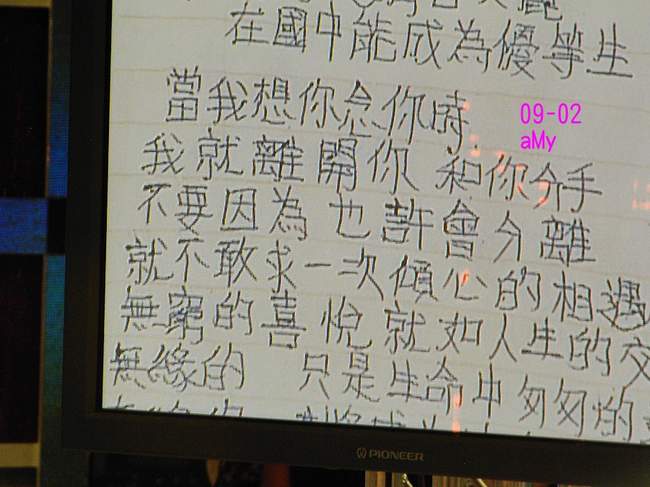 在國中能成為優等生
當我想你念你時
09-02
aMy
我就離開你 和你分手
不要因為 也許會分離
就不敢求一次傾心的相遇
無窮的喜悅就如人生的交
無緣的 只是生命中匆匆的
PIONEER